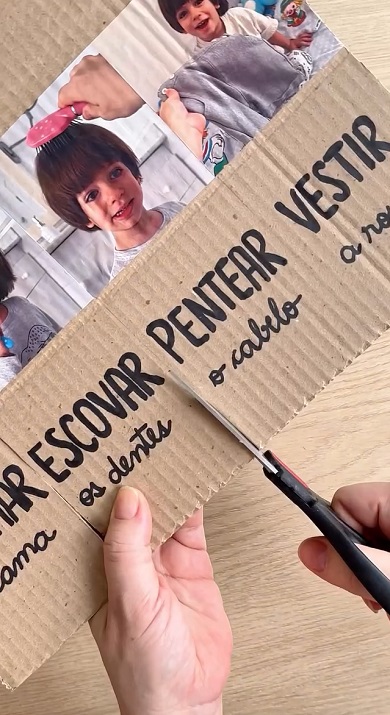 ESCOVAR
os dentes
PENTEAR
o cabelo
VESTIR
a
ama